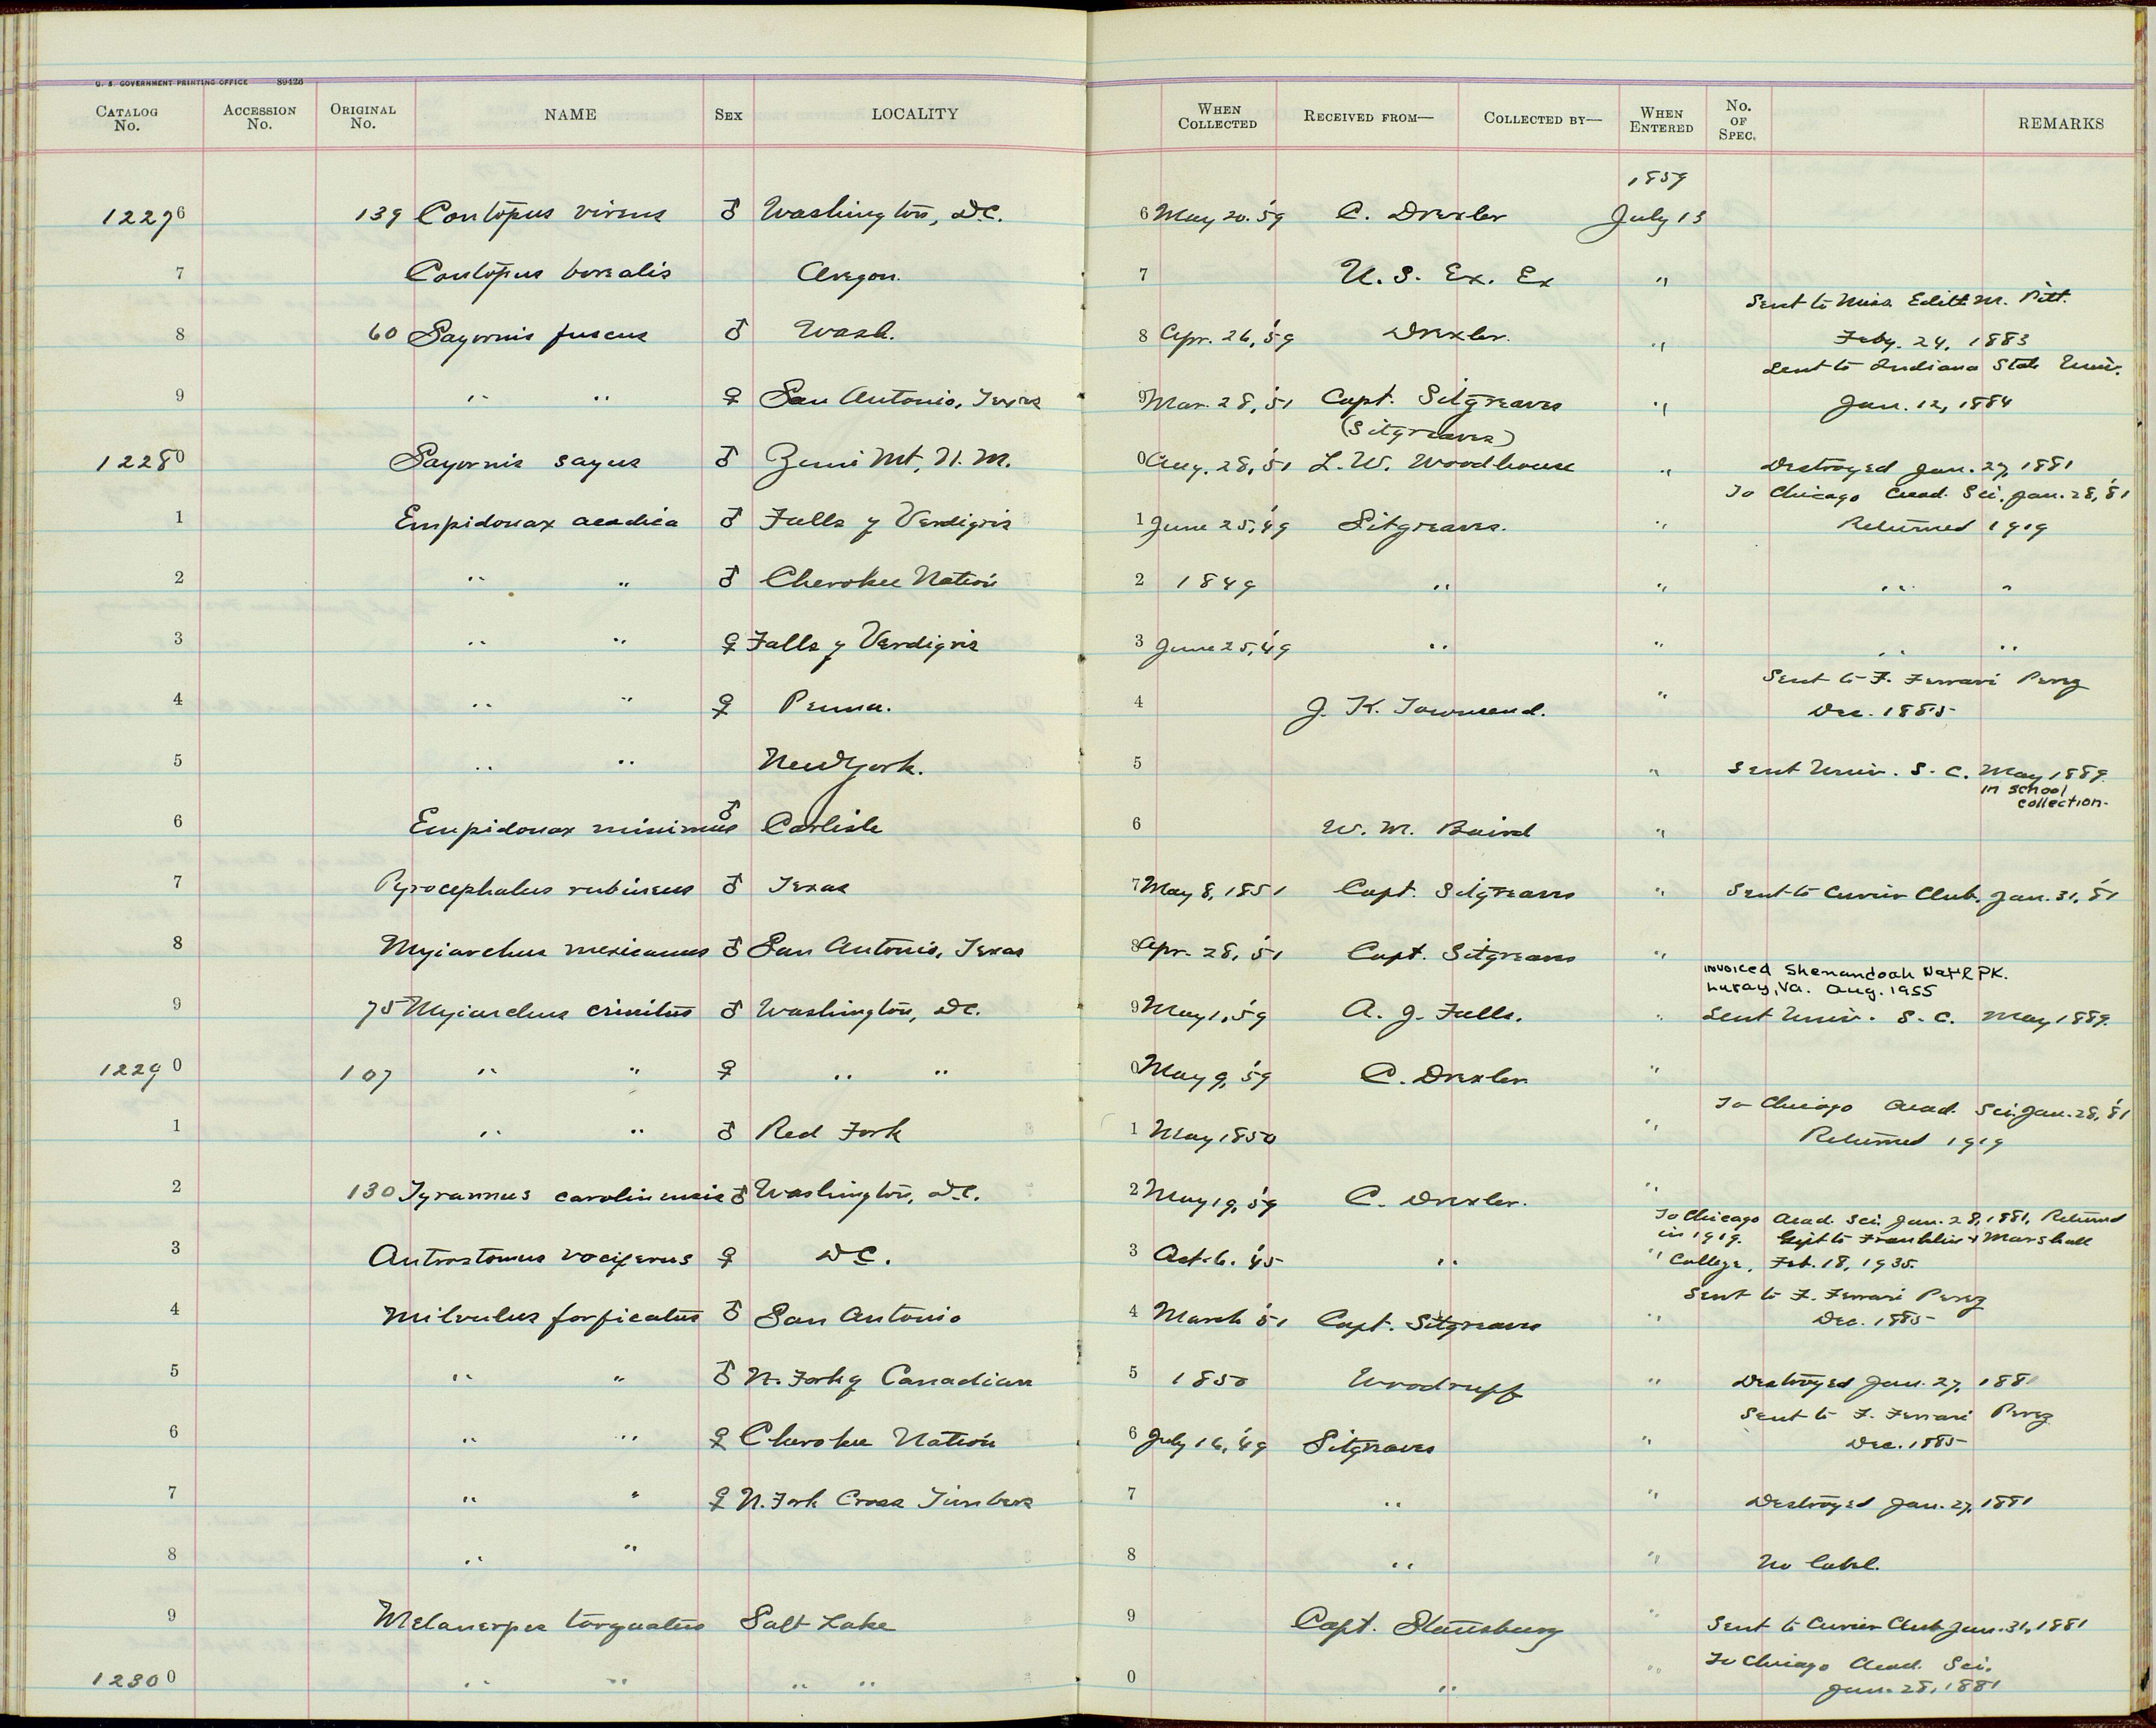 U. S. GOVERNMENT PRINTING OFFICE 89426
CATALOG No. ACCESSION No. ORIGINAL No. NAME SEX LOCALITY WHEN COLLECTED RECEIVED FROM— COLLECTED BY— WHEN ENTERED No. OF SPEC. REMARKS
1859
12276 139 Contopus virens ♂ Washington, D.C. 6 May 20. '59 C. Drexler July 13
7 Contopus borealis Oregon. 7 U. S. Ex. Ex "
Sent to Miss Edith M. Pitt.
8 60 Sayornis fuscus ♂ Wash. 8 Apr. 26, '59 Drexler. " Feby. 24, 1883
Sent to Indiana State Univ.
9 " " ♀ San Antonio, Texas 9 Mar. 28, '51 Capt. Sitgreaves " Jan. 12, 1884
(Sitgreaves)
12280 Sayornis sayus ♂ Zuni Mt, N. M. 0 Aug. 28, '51 L. W. Woodhouse " Destroyed Jan. 27, 1881
To Chicago Acad. Sci. Jan. 28, '81
1 Empidonax acadica ♂ Falls of Verdigris 1 June 25, '49 Sitgreaves. " Returned 1919
2 " " ♂ Cherokee Nation 2 1849 " " " "
3 " " ♀ Falls of Verdigris 3 June 25, '49 " " " "
Sent to F. Ferrari Perez
4 " " ♀ Penna. 4 J. K. Townsend. " Dec. 1885
5 " " New York. 5 " Sent Univ. S. C. May 1889.
in school
collection.
6 Empidonax minimus ♂ Carlisle 6 W. M. Baird "
7 Pyrocephalus rubineus ♂ Texas 7 May 8, 1851 Capt. Sitgreaves " Sent to Cuvier Club, Jan. 31, '81
8 Myiarchus mexicanus ♂ San Antonio, Texas 8 Apr. 28, '51 Capt. Sitgreaves "
invoiced Shenandoah Nat'l PK.
Luray, Va. Aug. 1955
9 75 Myiarchus crinitus ♂ Washington, DC. 9 May 1, '59 A. J. Falls. " Sent Univ. S. C. May 1889.
12290 107 " " ♀ " " 0 May 9, '59 C. Drexler "
To Chicago Acad. Sci. Jan. 28, '81
1 " " ♂ Red Fork 1 May 1850 " Returned 1919
2 130 Tyrannus carolinensis ♂ Washington, D.C. 2 May 19, '59 C. Drexler. "
To Chicago Acad. Sci. Jan. 28, 1881, Returned
in 1919. Gift to Franklin & Marshall
3 Antrostomus vociferus ♀ DC. 3 Oct. 6. '45 " " College, Feb. 18, 1935.
Sent to F. Ferrari Perez
4 Milvulus forficatus ♂ San Antonio 4 March '51 Capt. Sitgreaves " Dec. 1885
5 " " ♂ N. Fork of Canadian 5 1850 Woodruff " Destroyed Jan. 27, 1881
Sent to F. Ferrari Perez
6 " " ♀ Cherokee Nation 6 July 16, '49 Sitgreaves " Dec. 1885
7 " " ♀ N. Fork Cross Timbers 7 " " Destroyed Jan. 27, 1881
8 " " 8 " " No label.
9 Melanerpes torquatus Salt Lake 9 Capt. Stansbury " Sent to Cuvier Club Jan. 31, 1881
To Chicago Acad. Sci.
12300 " " " " 0 " " Jan. 28, 1881